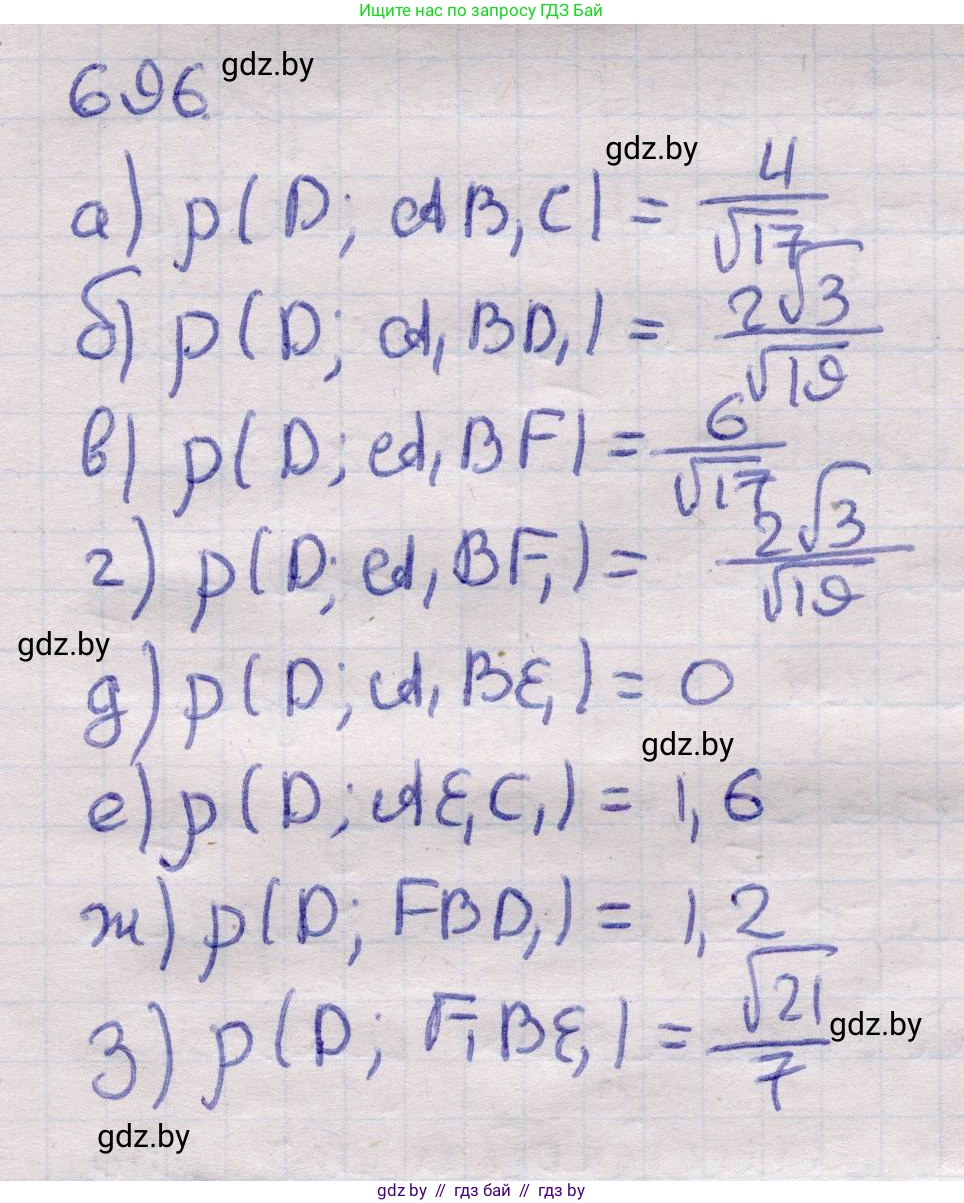 Ищите нас по запросу ГДЗ Бай
696 gdz.by
gdz.by
а) ρ(D; AB₁C) = 4/√17
б) ρ(D; A₁BD₁) = 2√3/√19
в) ρ(D; A₁BF) = 6/√17
г) ρ(D; A₁BF₁) = 2√3/√19
gdz.by
д) ρ(D; A₁BE₁) = 0
gdz.by
е) ρ(D; AE₁C₁) = 1,6
ж) ρ(D; FBD₁) = 1,2
з) ρ(D; F₁BE₁) = √21/7
gdz.by
gdz.by
gdz.by // гдз бай // gdz.by